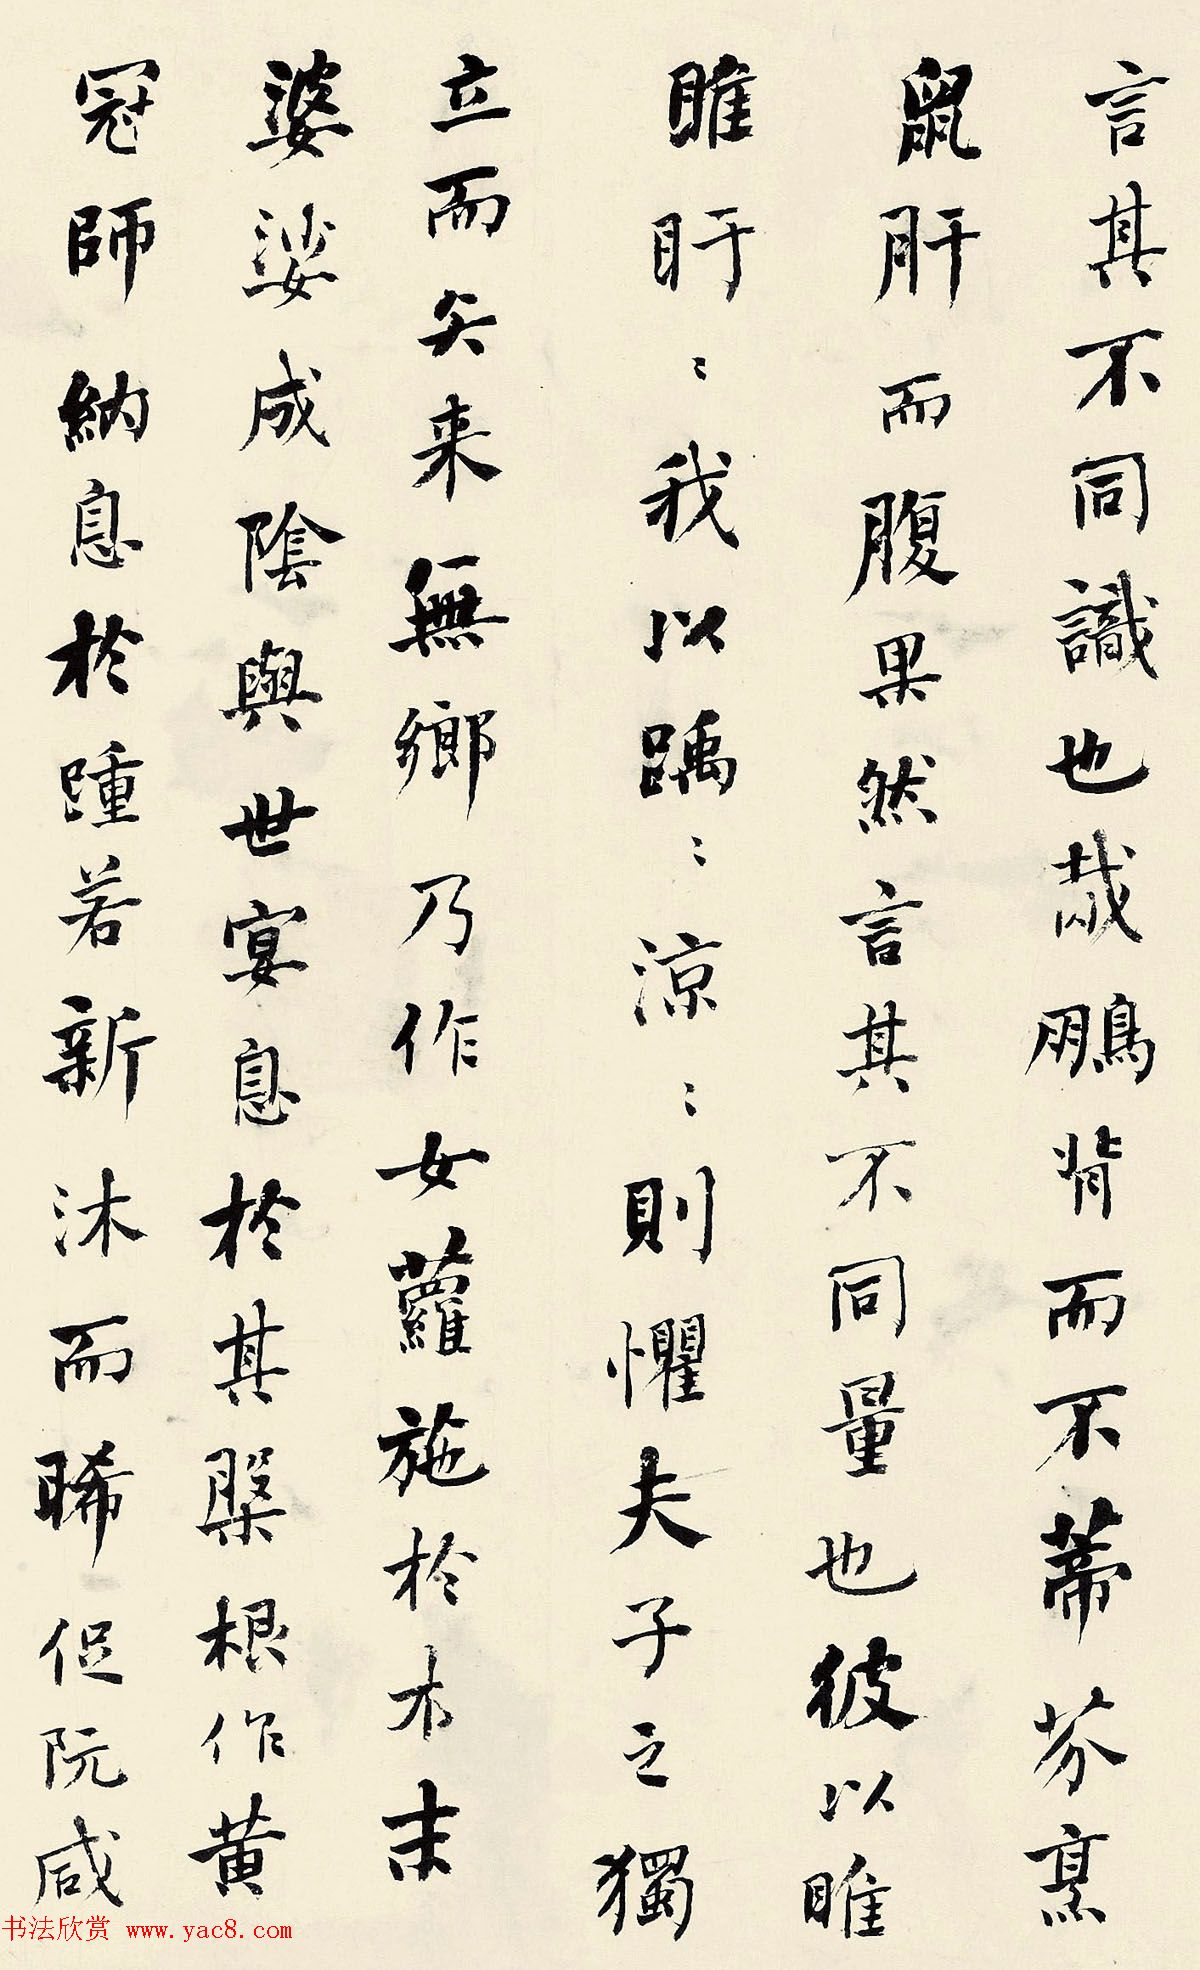 言其不同識也哉鵬背而不蒂芥烹
鼠肝而腹果然言其不同量也彼以睢
睢盱〻我以踽〻涼〻則懼夫子之獨
立而矢来無鄉乃作女蘿施於木末
婆娑成陰與世宴息於其槃根作黄
冠師納息於踵若新沐而晞促阮咸
书法欣赏 www.yac8.com